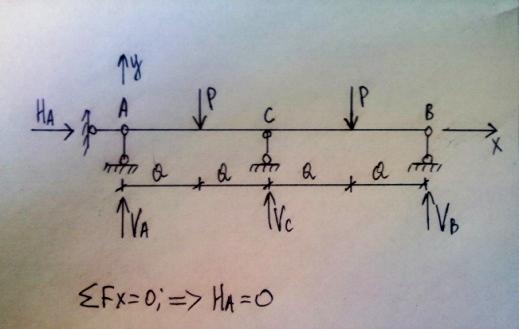 y
HA
A
P
C
P
B
x
a a a a
VA
VC
VB
ΣFx=0; => HA=0